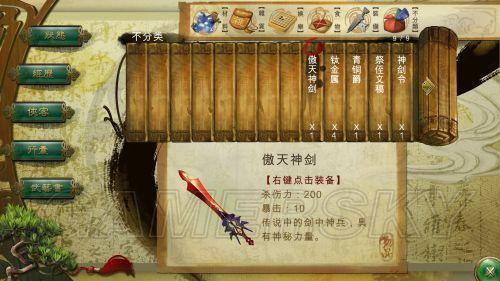 不分类
9/9
傲天神剑 X1
钛金属 X4
青铜爵 X1
祭侄文稿 X1
神剑令 X1
狀態
經歷
俠客
行囊
武藝書
傲天神剑
【右键点击装备】
杀伤力：200
暴击：10
传说中的剑中神兵，具
有神秘力量。
GAMERSKY